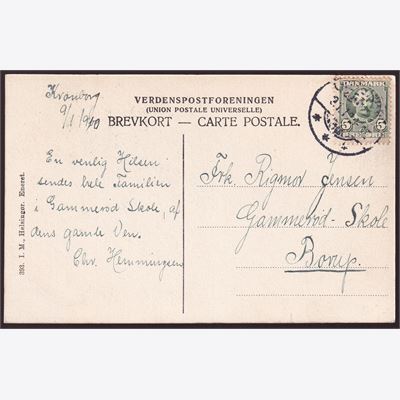 Kronborg
9/1 1910
VERDENSPOSTFORENINGEN
(UNION POSTALE UNIVERSELLE)
BREVKORT — CARTE POSTALE.
DANMARK
5 5
En venlig Hilsen
sendes hele Familien
i Gammerød Skole, af
dens gamle Ven.
Chr. Hemmingsen
Frk. Rigmor Jensen
Gammerød-Skole
Borup.
393. I. M., Helsingør. Eneret.